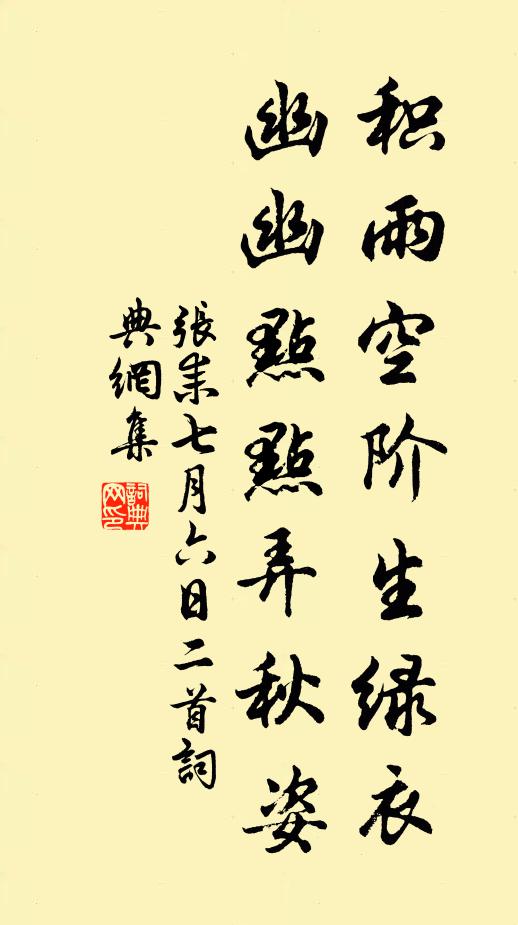 积雨空阶生绿衣
幽幽點點弄秋姿
張耒七月六日二首詞
典網集
詞典
网印